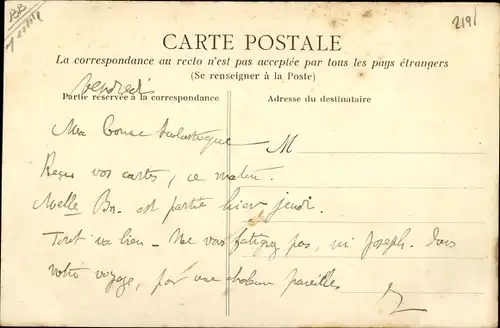 2191
CARTE POSTALE
La correspondance au recto n'est pas acceptée par tous les pays étrangers
(Se renseigner à la Poste)
vendredi
Partie réservée à la correspondance
Adresse du destinataire
Ma bonne
M
Reçu vos cartes, ce matin.
Melle Bn. est partie hier jeudi.
Tout va bien - Ne vous fatiguez pas, ni Joseph. Dans
votre voyage, par une chaleur pareilles